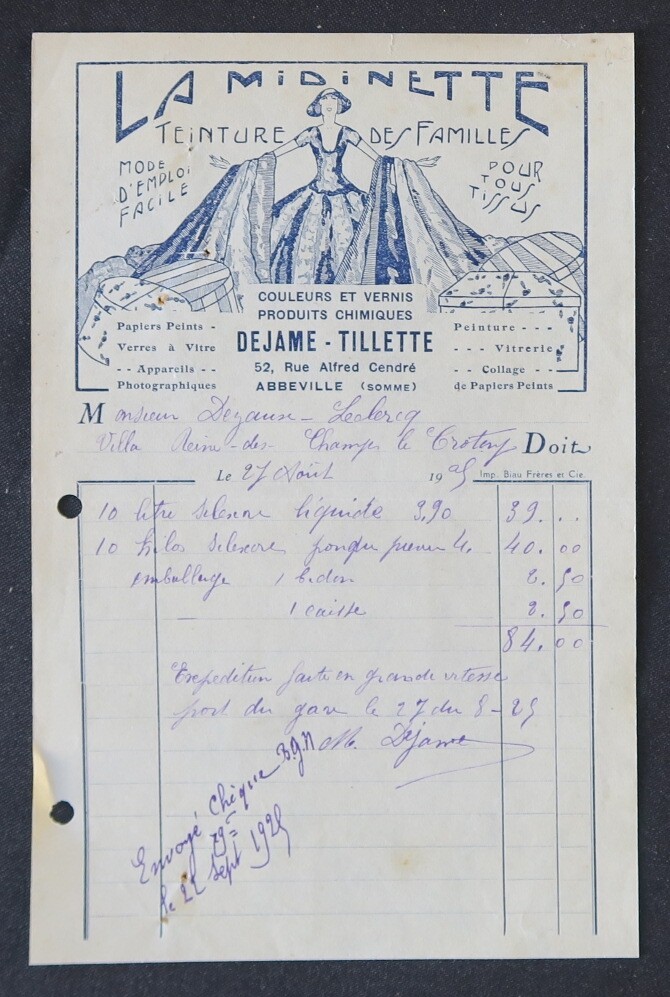 LA MIDINETTE
TEINTURE DES FAMILLES
MODE
D'EMPLOI
FACILE
POUR
TOUS
TISSUS
COULEURS ET VERNIS
PRODUITS CHIMIQUES
DEJAME - TILLETTE
52, Rue Alfred Cendré
ABBEVILLE (SOMME)
Papiers Peints -
Verres à Vitre
-- Appareils --
Photographiques
Peinture - - -
- - - Vitrerie
-- Collage --
de Papiers Peints
Monsieur Dezaux - Leclercq
Villa Reine-des-Champs le Crotoy Doit
Le 27 Août 1925 Imp. Biau Frères et Cie.
10 litre Silexore liquide 3.90 39. ..
10 kilos Silexore poudre 4. 40.00
emballage 1 bidon 2.50
— 1 caisse 2.50
84.00
Expedition faite en grande vitesse
port du gare le 27 du 8-25
M. Dejame
Envoyé Chèque B.g.N
le 22 Sept 1925